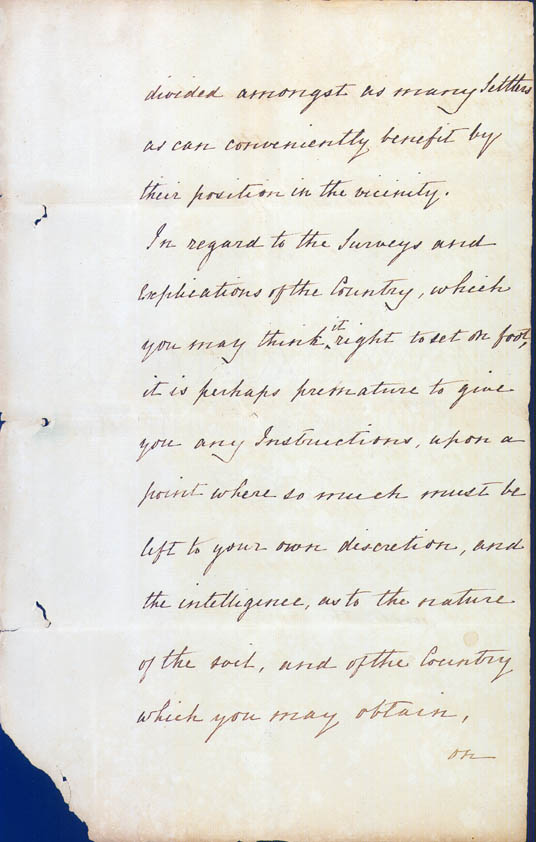 divided amongst as many Settlers
as can conveniently benefit by
their position in the vicinity.
In regard to the Surveys and
Explications of the Country, which
you may think it right to set on foot,
it is perhaps premature to give
you any Instructions, upon a
point where so much must be
left to your own discretion, and
the intelligence, as to the nature
of the soil, and of the Country
which you may obtain,
on